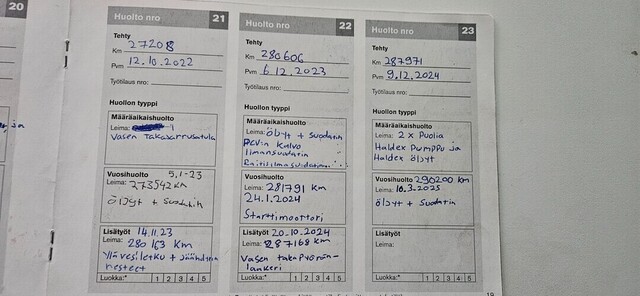 20
Huolto nro 21
Tehty
Km 27208
Pvm 12.10.2022
Työtilaus nro:
Huollon tyyppi
Määräaikaishuolto
Leima:
Vasen takajarrusatula
Vuosihuolto 5.1-23
Leima: 273542 KM
Öljyt + Suodatin
Lisätyöt 14.11.23
Leima: 280163 KM
Ylävesiletku + jäähdytin
nesteet
Luokka:* 1 2 3 4 5
Huolto nro 22
Tehty
Km 280606
Pvm 6.12.2023
Työtilaus nro:
Huollon tyyppi
Määräaikaishuolto
Leima: öbyt + suodatin
PCV:n kalvo
ilmansuodatin
Raitisilmasuodatin
Vuosihuolto
Leima: 281791 KM
24.1.2024
Starttimoottori
Lisätyöt 20-10.2024
Leima: 287168 km
Vasen takapyörän-
laakeri
Luokka:* 1 2 3 4 5
Huolto nro 23
Tehty
Km 287971
Pvm 9.12.2024
Työtilaus nro:
Huollon tyyppi
Määräaikaishuolto
Leima: 2 x Puolia
Haldex Pumppu ja
Haldex öljyt
Vuosihuolto 290200 km
Leima: 10.3-2025
öljyt + Suodatin
Lisätyöt
Leima:
Luokka:* 1 2 3 4 5
19